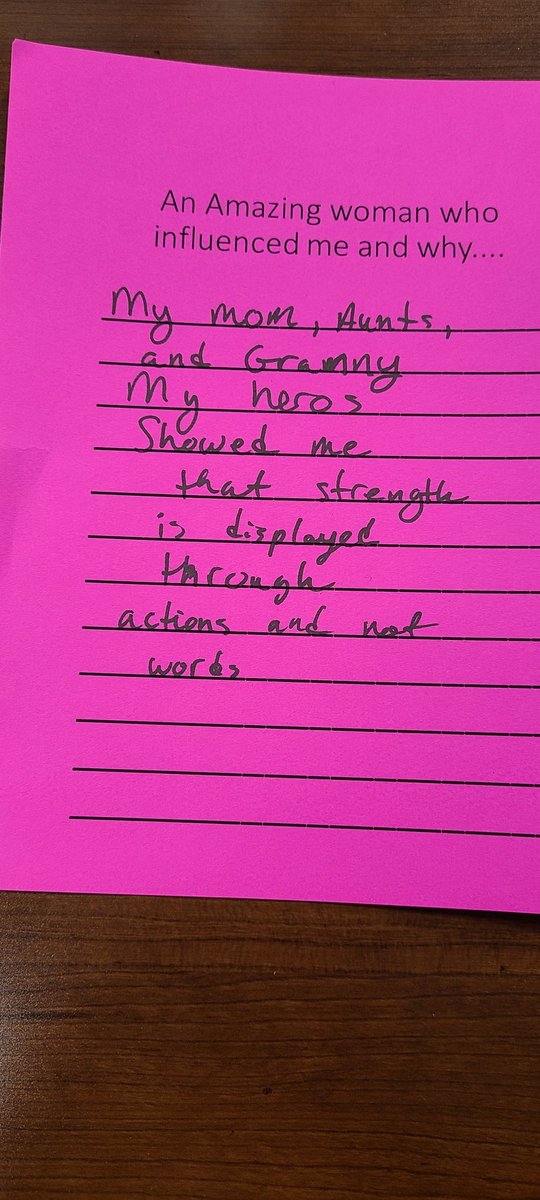 An Amazing woman who
influenced me and why....
My mom, Aunts,
and Grammy
My heros
Showed me
that strength
is displayed
through
actions and not
words